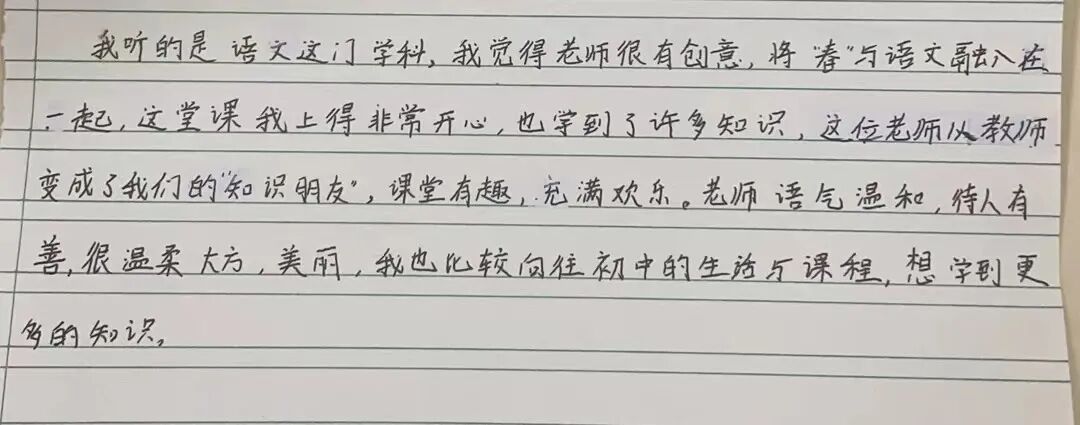 我听的是语文这门学科,我觉得老师很有创意,将"春"与语文融入在
一起,这堂课我上得非常开心,也学到了许多知识,这位老师从教师
变成了我们的"知识朋友",课堂有趣,充满欢乐。老师语气温和,待人有
善,很温柔大方,美丽,我也比较向往初中的生活与课程,想学到更
多的知识。